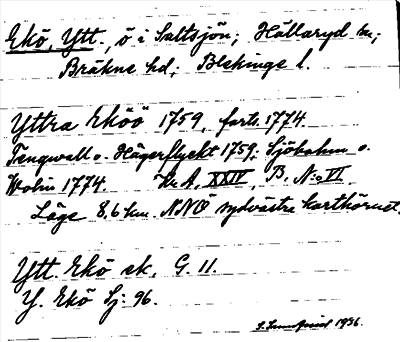 Ekö, Ytt., ö i Saltsjön; Hällaryd sn;
Bräkne hd; Blekinge l.
Yttra Eköö 1759, fort. 1774.
Tengwall o. Hägerflyckt 1759; Sjöbohm o.
Wolin 1774. Kr. A, XXIV, B. N:o VI
Läge 8,6 km. NNO sydvästra karthörnet.
Ytt. Ekö sk. G. 11.
Y. Ekö Sj: 96.
1936.